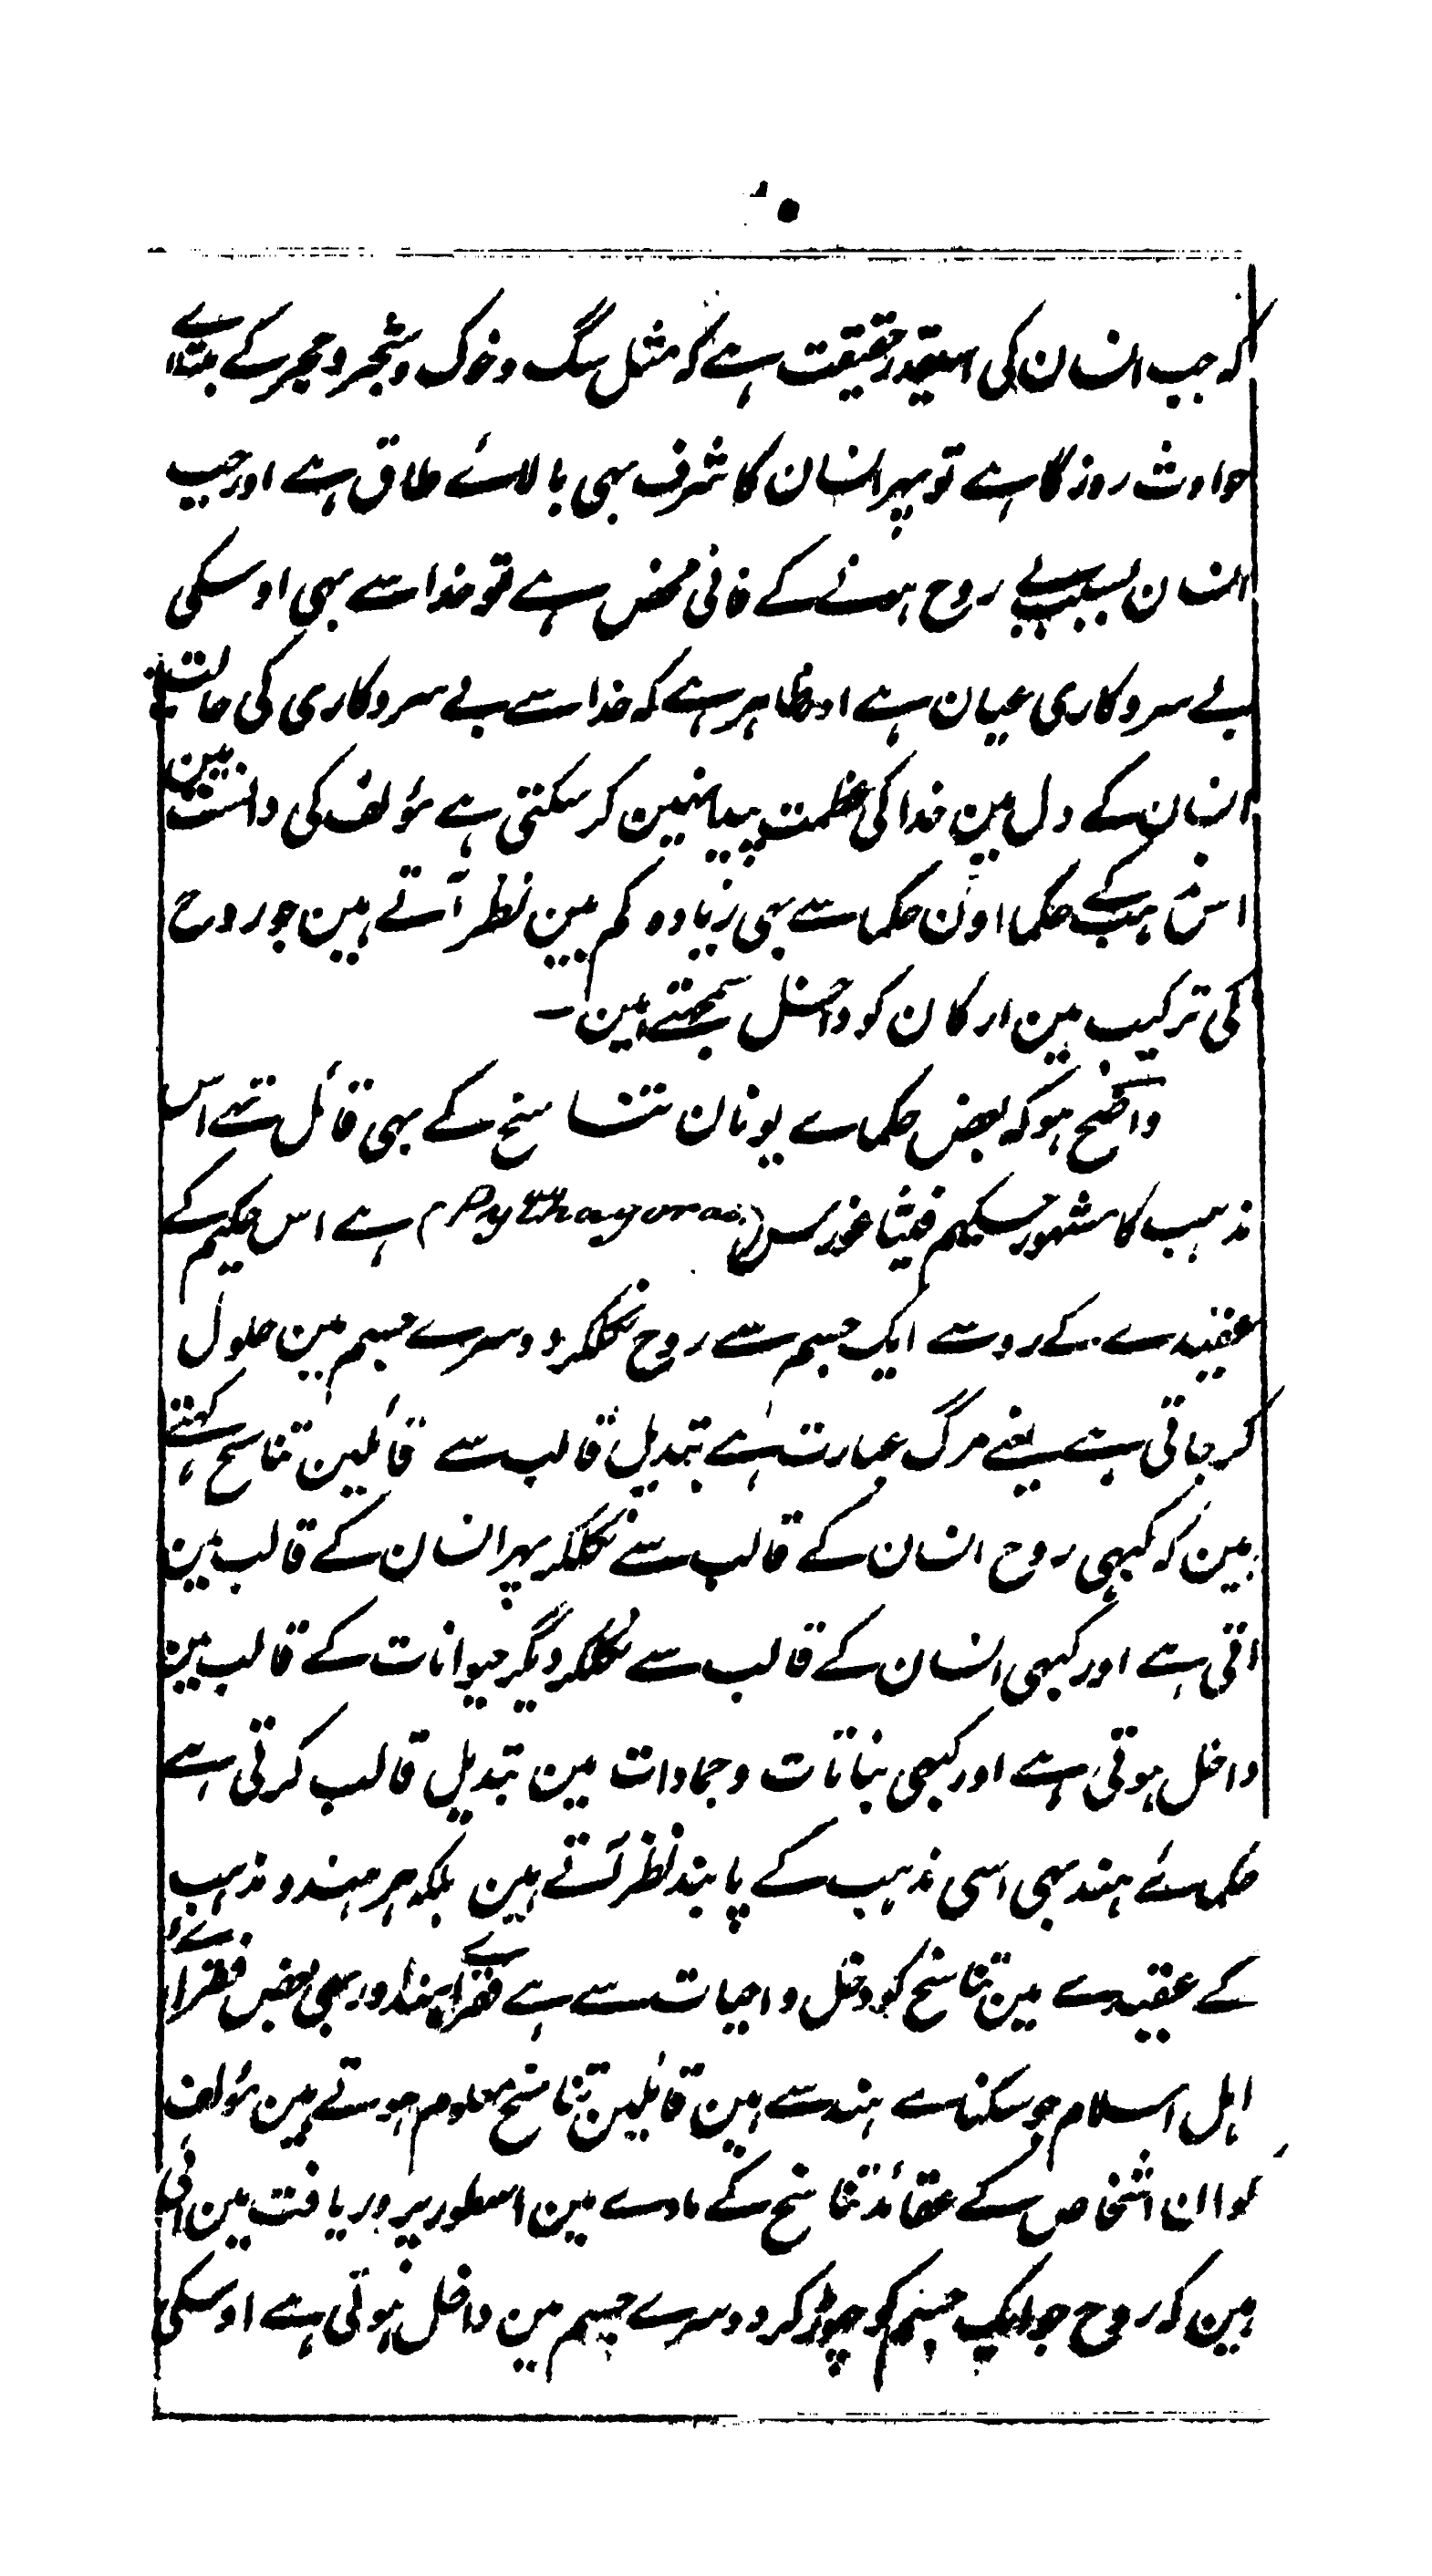 کہ جب انسان کی اسیقدر حقیقت ہے کہ مثل سگ و خوک و شجر و حجر کے مبتلاے
حوادث روزگا ہے تو پہر انسان کا شرف بہی بالائے طاق ہے اور جب
انسان بسبب بے روح ہونے کے فانی محض ہے تو خدا سے بہی اوسکی
بے سروکاری عیان ہے اور ظاہر ہے کہ خدا سے بے سروکاری کی حالت
انسان کے دل مین خدا کی عظمت پیدا نہین کر سکتی ہے مؤلف کی دانست مین
اس مذہب کے حکما اون حکما سے بہی زیادہ کم بین نظر آتے ہین جو روح
کی ترکیب مین ارکان کو داخل سمجھتے ہین -
واضح ہو کہ بعض حکماے یونان تناسخ کے بہی قائل تھے اس
مذہب کا مشہور حکیم فیثاغورس (Pythagoras) ہے اس حکیم کے
عقیدے کے رو سے ایک جسم سے روح نکلکر دوسرے جسم مین حلول
کر جاتی ہے یعنے مرگ عبارت ہے تبدیل قالب سے قائلین تناسخ کہتے
ہین کہ کبہی روح انسان کے قالب سے نکلکر پہر انسان کے قالب مین
اتی ہے اور کبہی انسان کے قالب سے نکلکر دیگر حیوانات کے قالب مین
داخل ہوتی ہے اور کبھی نباتات و جمادات مین تبدیل قالب کرتی ہے
حکمائے ہند بہی اسی مذہب کے پابند نظر آتے ہین بلکہ ہر ہندو مذہب
کے عقیدے مین تناسخ کو دخل واجبات سے ہے فقراے ہند اور بہی بعض فقراے
اہل اسلام جو سکناے ہند سے ہین قائلین تناسخ معلوم ہوتے ہین مؤلف
کو ان اشخاص کے عقائد تناسخ کے مادے مین اسطور پر دریافت مین آئی
ہین کہ روح جو ایک جسم کو چوڑ کر دوسرے جسم مین داخل ہوتی ہے اوسکی